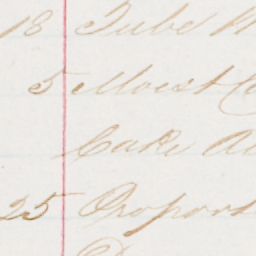 18 Tube
5 Moist
Cake
25 Propor